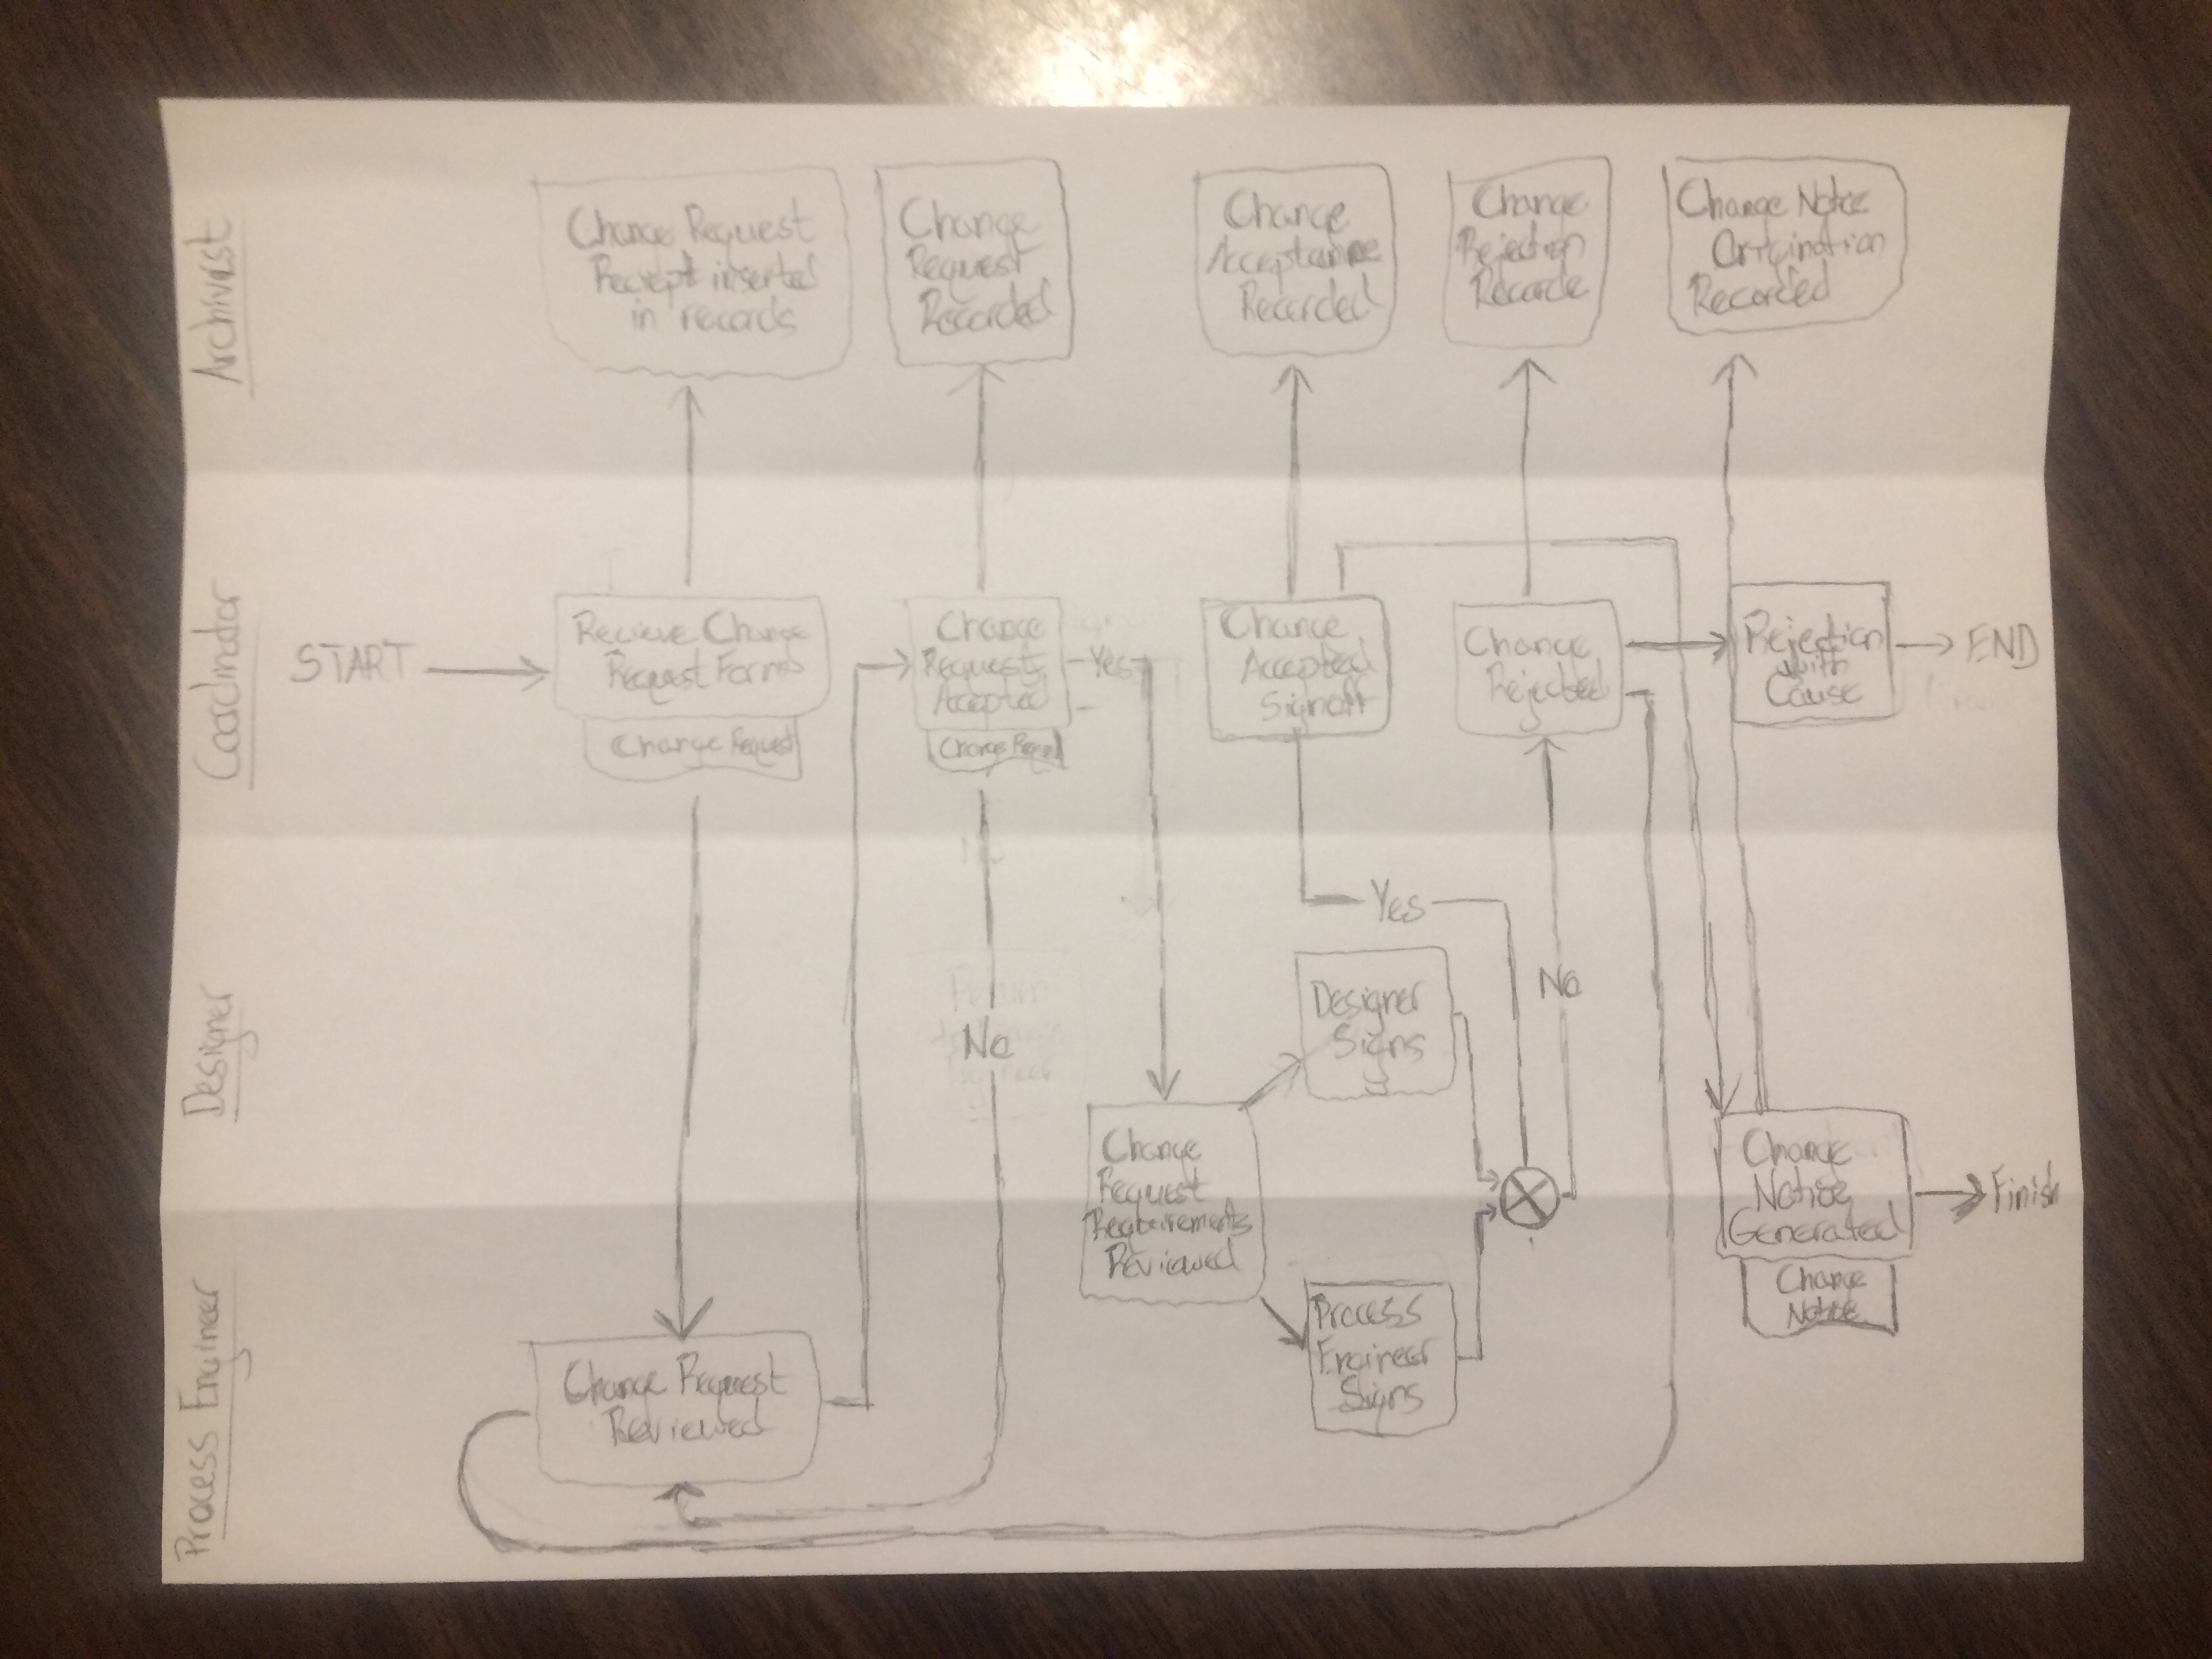 Archivist
Change Request
Reciept inserted
in records
Change
Request
Recorded
Change
Acceptance
Recorded
Change
Rejection
Recorde
Change Notice
Origination
Recorded
Coordinator
START
Recieve Change
Request Forms
Change Request
Change
Request
Accepted
Change Request
Yes
Change
Accepted
Signoff
Change
Rejected
Rejection
with
Cause
END
Designer
No
Yes
No
Designer
Signs
Change
Request
Requirements
Reviewed
Change
Notice
Generated
Change
Notice
Finish
Process Engineer
Change Request
Reviewed
Process
Engineer
Signs